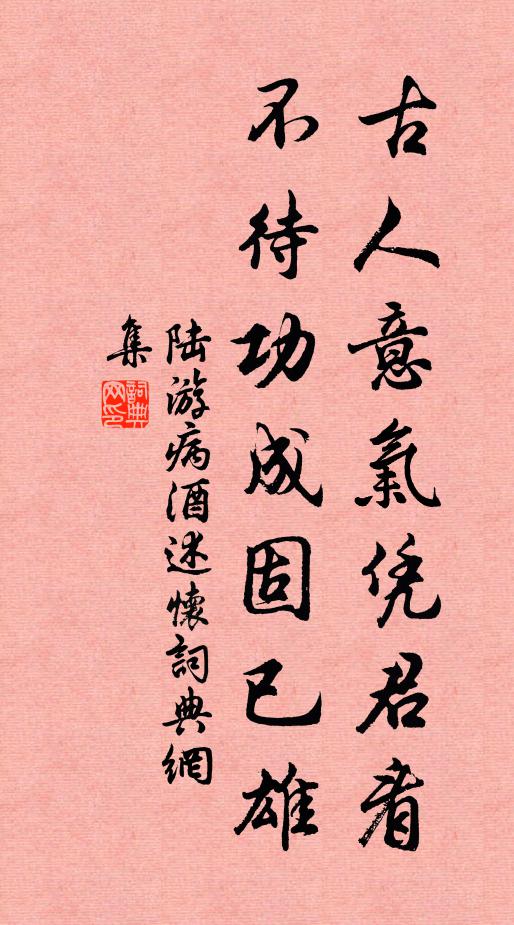 古人意氣凭君看
不待功成固已雄
陆游病酒述懷詞典網
集
詞典
网印